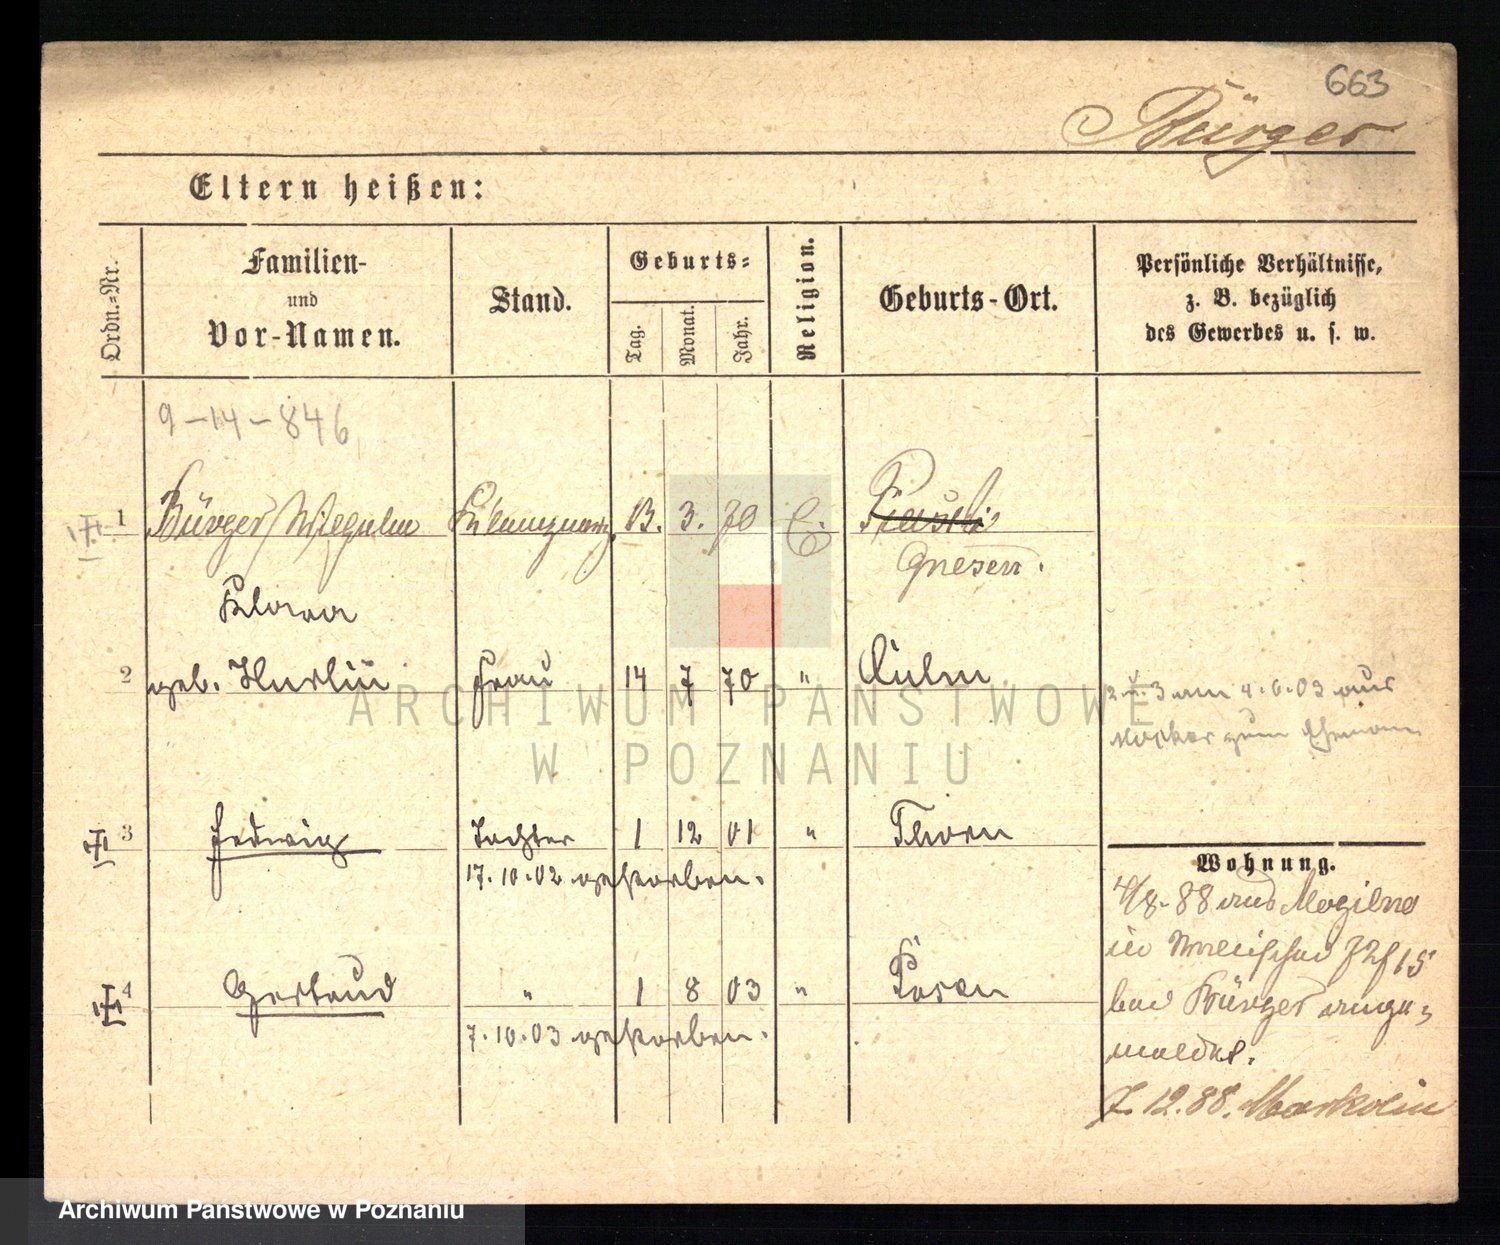 663
Bürger
Eltern heißen:
Ordn.-Nr.
Familien-
und
Vor-Namen.
Stand.
Geburts-
Tag.
Monat.
Jahr.
Religion.
Geburts-Ort.
Persönliche Verhältnisse,
z. B. bezüglich
des Gewerbes u. s. w.
9-14-846
1 Bürger Wilhelm 13. 3. 70 E.
Gnesen.
Klara
2 geb. Frau 14 7 70 " Culm
2 u. 3 am 4.6.03 aus
zum Ehemann
3 Hedwig Tochter 1 12 01 " Thorn
17.10.02 gestorben.
Wohnung.
4/8.88 aus Mogilno
4 Gertrud " 1 8 03 " Posen
7.10.03 gestorben.
bei Bürger ange-
meldet.
7.12.88.
ARCHIWUM PAŃSTWOWE
W POZNANIU
Archiwum Państwowe w Poznaniu